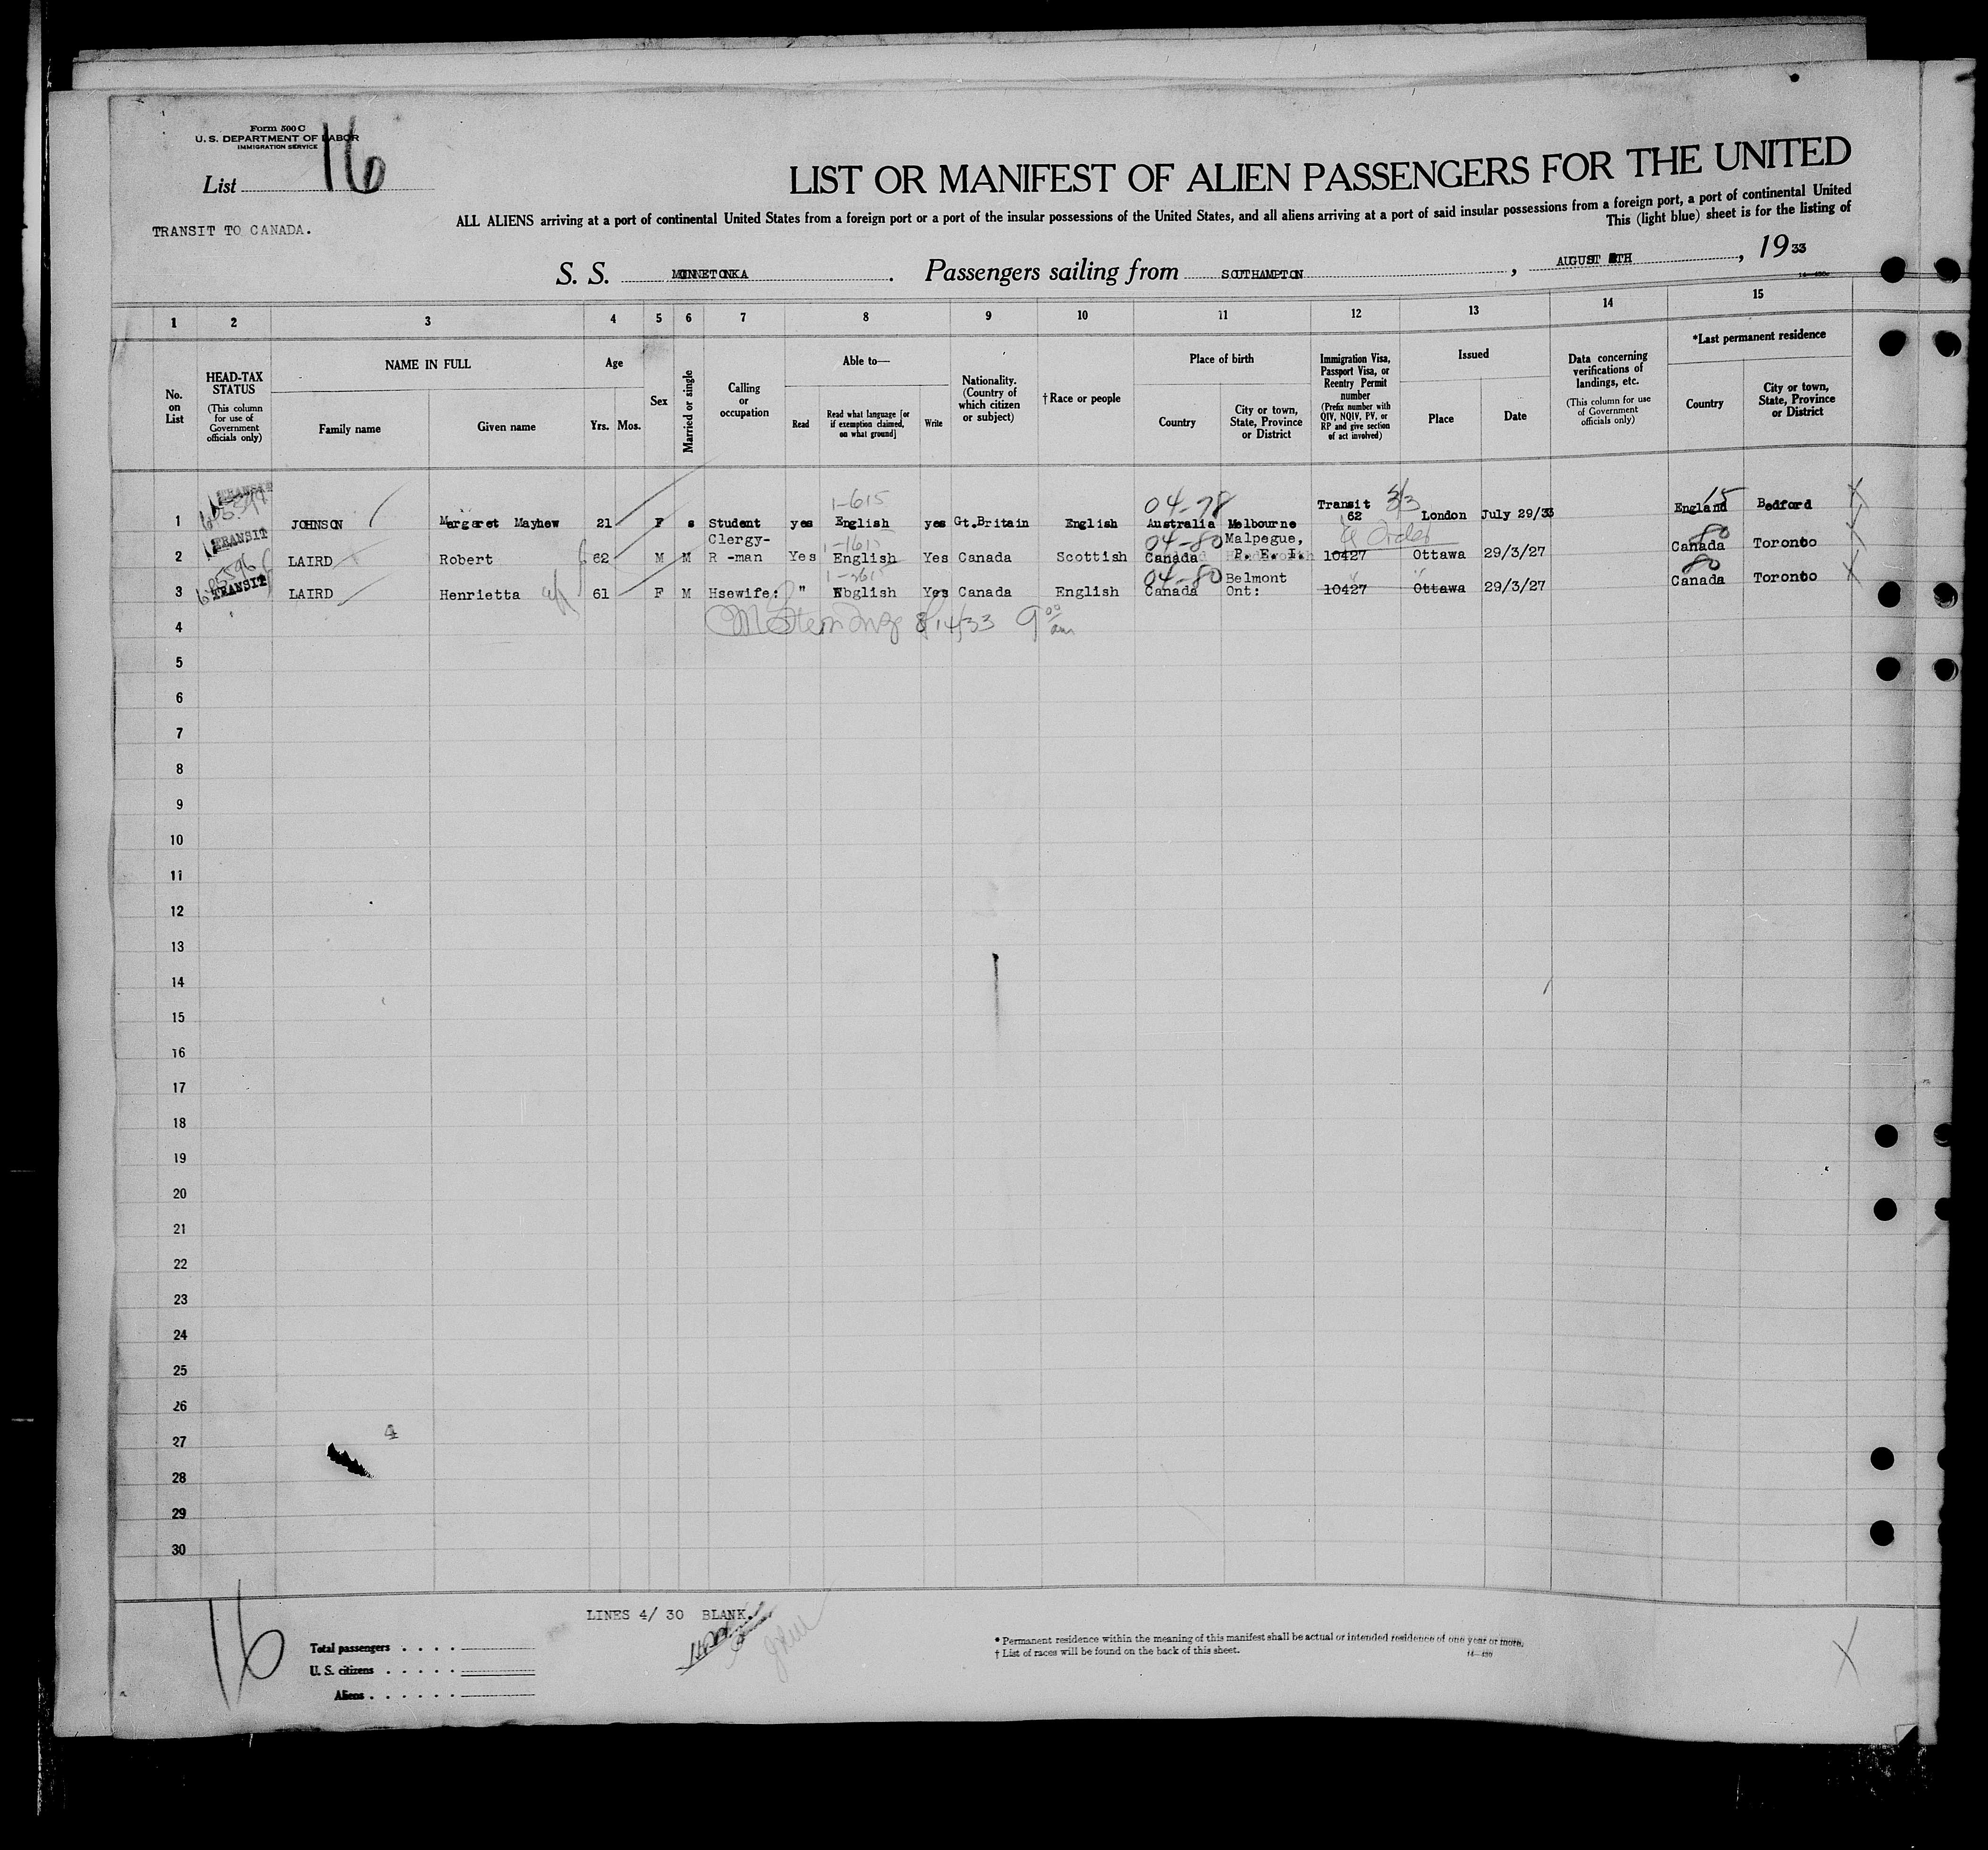 Form 500 C
U. S. DEPARTMENT OF LABOR
IMMIGRATION SERVICE
List 16
LIST OR MANIFEST OF ALIEN PASSENGERS FOR THE UNITED
ALL ALIENS arriving at a port of continental United States from a foreign port or a port of the insular possessions of the United States, and all aliens arriving at a port of said insular possessions from a foreign port, a port of continental United
This (light blue) sheet is for the listing of
TRANSIT TO CANADA.
S. S. MINNETONKA. Passengers sailing from SOUTHAMPTON, AUGUST TH, 1933
14—480
1 2 3 4 5 6 7 8 9 10 11 12 13 14 15
No. on List
HEAD-TAX STATUS
(This column for use of Government officials only)
NAME IN FULL
Family name
Given name
Age
Yrs. Mos.
Sex
Married or single
Calling or occupation
Able to—
Read
Read what language [or if exemption claimed, on what ground]
Write
Nationality. (Country of which citizen or subject)
†Race or people
Place of birth
Country
City or town, State, Province or District
Immigration Visa, Passport Visa, or Reentry Permit number
(Prefix number with QIV, NQIV, PV, or RP and give section of act involved)
Issued
Place
Date
Data concerning verifications of landings, etc.
(This column for use of Government officials only)
*Last permanent residence
Country
City or town, State, Province or District
1-615 04-78 Transit 3/3 15
1 TRANSIT JOHNSON Margaret Mayhew 21 F s Student yes English yes Gt.Britain English Australia Melbourne 62 London July 29/33 England Bedford
Clergy- 04-80 Malpegue, 80
2 TRANSIT LAIRD Robert 62 M M R -man Yes English Yes Canada Scottish Canada P. E. I. 10427 Ottawa 29/3/27 Canada Toronto
04-80 Belmont 80
3 TRANSIT LAIRD Henrietta 61 F M Hsewife: " English Yes Canada English Canada Ont: 10427 Ottawa 29/3/27 Canada Toronto
4 8/14/33 9 00 am
5
6
7
8
9
10
11
12
13
14
15
16
17
18
19
20
21
22
23
24
25
26
27 4
28
29
30
LINES 4/ 30 BLANK.
16
Total passengers
U. S. citizens
Aliens
* Permanent residence within the meaning of this manifest shall be actual or intended residence of one year or more.
† List of races will be found on the back of this sheet.
14—480